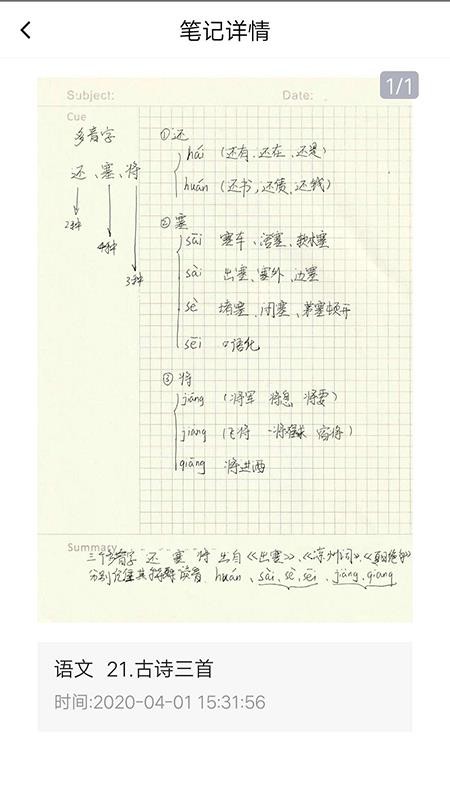 笔记详情
1/1
Subject:
Date:
Cue
多音字
还、塞、将
2种
4种
3种
①还
hái (还有、还在、还是)
huán (还书,还债、还钱)
②塞
sāi 塞车、活塞、软木塞
sài 出塞、塞外、边塞
sè 堵塞、闭塞、茅塞顿开
sēi 口语化
③将
jiāng (将军 将息 将要)
jiàng (飞将 一将难求
qiāng 将进酒
Summary
三个多音字 还 塞 将 出自《出塞》、《凉州词》、《夏日绝句》
分别 其 读音 huán、sài、sè、sēi、jiàng、qiang
语文 21.古诗三首
时间:2020-04-01 15:31:56